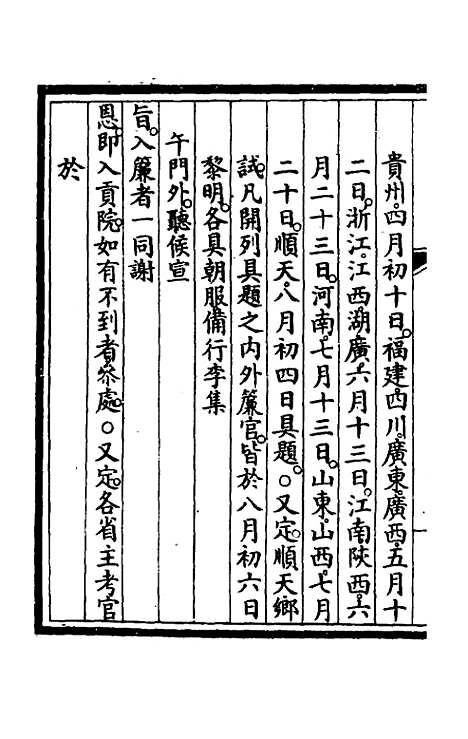 貴州。四月初十日。福建四川。廣東。廣西。五月十
二日。浙江。江西。湖廣。六月十三日。江南。陝西。六
月二十三日。河南。七月十三日。山東。山西。七月
二十日。順天。八月初四日具題。○又定。順天鄉
試。凡開列具題之內外簾官。皆於八月初六日
黎明。各具朝服備行李集
午門外。聽候宣
旨。入簾者一同謝
恩。即入貢院。如有不到者參處。○又定。各省主考官
於